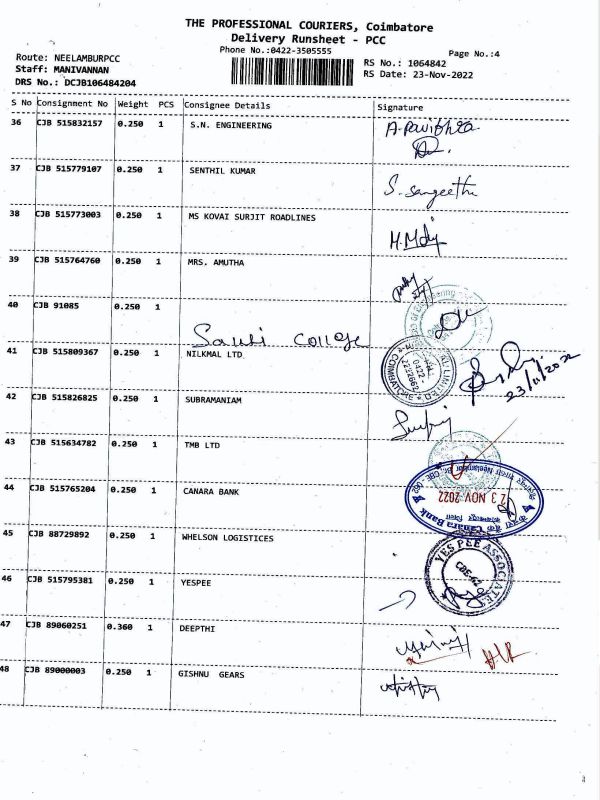 THE PROFESSIONAL COURIERS, Coimbatore
Delivery Runsheet - PCC
Phone No.:0422-3505555
Page No.:4
Route: NEELAMBURPCC
RS No.: 1064842
Staff: MANIVANNAN
RS Date: 23-Nov-2022
DRS No.: DCJB106484204
S No Consignment No Weight PCS Consignee Details Signature
36 CJB 515832157 0.250 1 S.N. ENGINEERING A-Pavithra
37 CJB 515779107 0.250 1 SENTHIL KUMAR S. Sangeetha
38 CJB 515773003 0.250 1 MS KOVAI SURJIT ROADLINES
39 CJB 515764760 0.250 1 MRS. AMUTHA
40 CJB 91085 0.250 1
College
41 CJB 515809367 0.250 1 NILKMAL LTD
23/11/2022
42 CJB 515826825 0.250 1 SUBRAMANIAM
43 CJB 515634782 0.250 1 TMB LTD
44 CJB 515765204 0.250 1 CANARA BANK
23 NOV 2022
Canara Bank
45 CJB 88729892 0.250 1 WHELSON LOGISTICES
YES PEE ASSOCIATES
46 CJB 515795381 0.250 1 YESPEE
47 CJB 89060251 0.360 1 DEEPTHI
48 CJB 89000003 0.250 1 GISHNU GEARS